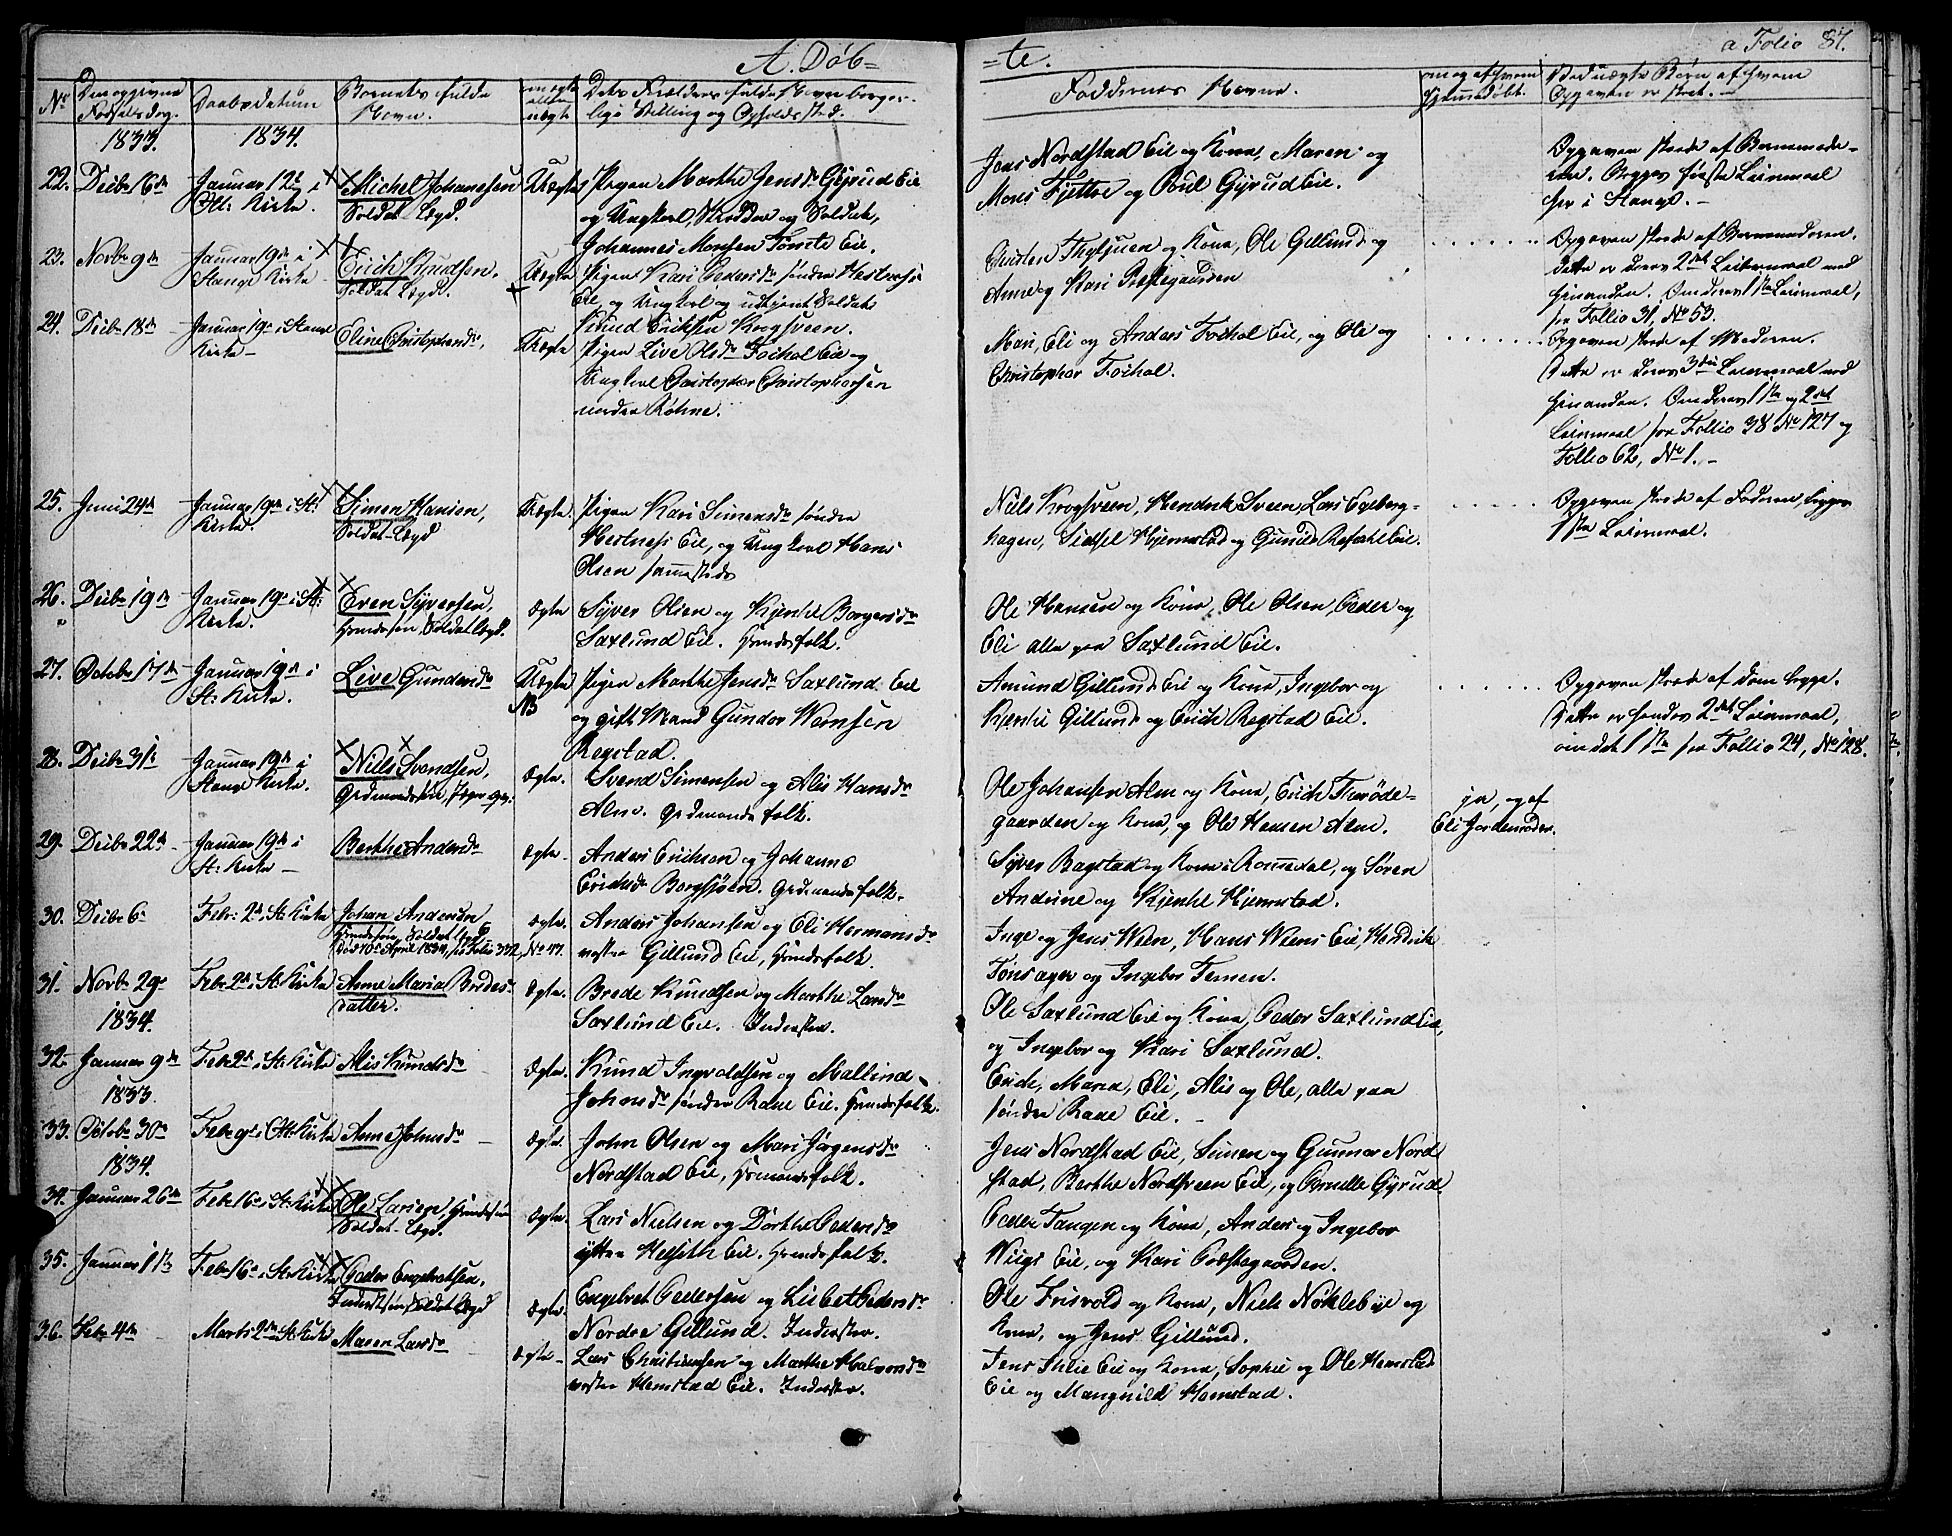 A. Døb=
=te.
a Folio 87.
No
Den opgivne Fødselsdag.
Daabsdatum
Barnets fulde Navn.
om ægte eller uægte
Dets Forældres fulde Navn borger-
lige Stilling og Opholdssted.
Faddernes Navne.
om og af hvem hjemmedøbt.
Ved uægte Børn af hvem
Opgaven er skeet.
1833. 1834.
22. Decbr 16de
Januar 12te i
St: Kirke.
Michel Johannesen
Soldat Lægd.
Uægte
Pigen Marthe Jensdr Gyrud Eie
og Ungkarl, Skrædder og Soldat,
Johannes Monsen Tomte Eie.
Jens Nordstad Eie og Kone, Maren og
Mons Fjetre og Poul Gyrud Eie.
Opgaven skede af Barnemode-
ren. Begges første Leiermaal
her i Stange.
23. Novbr 9de
Januar 19de i
Stange Kirke
Erich Knudsen.
Soldat Lægd.
Uægte
Pigen Kari Pedersdr søndre Hestnæs
Eie, og Ungkarl og udtjent Soldat
Knud Eriksen Krogsveen.
Ole Gillund og
Anne og Kari Præstegaarden
Opgaven skede af Barnemoderen.
Dette er deres 2det Leiermaal med
hinanden. Om deres 1ste Leiermaal,
see Follio 31, No 53.
24. Decbr 18de
Januar 19de i Stange
Kirke
Eline Christophersdr,
Uægte
Pigen Live Olsdr Fochol Eie og
Ungkarl Christopher Christophersen
nedre Røhne.
Mari, Eli og Anders Fochol Eie, og Ole og
Christopher Fochol.
Opgaven skede af Moderen.
Dette er deres 3die Leiermaal med
hinanden. Om deres 1ste og 2det
Leiermaal see Follio 38 No 127 og
Follio 62, No 1.
25. Juni 24de
Januar 19de i St:
Kirke
Simen Hansen,
Soldat-Lægd
Uægte.
Pigen Kari Simensdr søndre
Hestnæs Eie, og Ungkarl Hans
Olsen sammesteds
Niels Krogsveen, Hendrik Sveen, Lars Egeberg-
hagen, Sidsel Hjemstad og Gunild Refsahl Eie.
Opgaven skede af Faderen, begges
1ste Leiermaal.
26. Decbr 19de
Januar 19de i St:
Kirke.
Even Syversen,
Huusmandssøn, Soldat Lægd.
Ægte
Syver Olsen og Kjerste Borgersdr
Saxlund Eie. Huusmandsfolk.
Ole Hansen og Kone, Ole Olsen, Peder og
Eli alle paa Saxlund Eie.
27. October 17de
Januar 19de i
St: Kirke.
Live Gundersdr
Uægte
NB
Pigen Marthe Jensdr Saxlund Eie
og gift Mand Gunder Wernsen
Rogstad.
Amund Gillund Eie og Kone, Ingebor og
Kjersti Gillund og Erich Rogstad Eie.
Opgaven skede af dem begge.
Dette er hendes 2det Leiermaal,
om det 1ste see Follio 24, No 128.
28. Decbr 31te
Januar 19de i
Stange Kirke.
Niels Svendsen,
Ægte.
Svend Simensen og Alis Hansdr
Alm. Grdmands folk.
Ole Johansen Alm og Kone, Erich Thorøde-
gaarden og Kone, og Ole Hansen Alm.
ja, og af
Eli Jordemoder.
29. Decbr 22de
Januar 19de i
St: Kirke
Berthe Andersdr
Ægte.
Anders Erichsen og Johanne
Erichsdr Borgsjøen. Grdmandsfolk.
Syver Bagstad og Kone i Romedal, og Søren
Andrine og Kjersti Hjemstad.
30. Decbr 6te
Febr: 2den i St: Kirke
Johan Andersen
Huusmandssøn, Soldat Lægd
Død 10de April 1834, see Follio 332, No 47.
Ægte.
Anders Johansen og Eli Hermansdr
vestre Gillund Eie, Huusmandsfolk.
Inge og Jens Ween, Hans Weens Eie, Hendrik
Tønsager og Ingebor Temen.
31. Novbr 29de
Febr 2den i St: Kirke
Anne Maria Bredes-
datter.
Ægte.
Brede Knudsen og Marthe Larsdr
Saxlund Eie. Inderster.
Ole Saxlund Eie og Kone, Peder Saxlund Eie,
og Ingebor og Kari Saxlund.
1834.
32. Januar 9de
Febr 2den i St: Kirke
Alis Knudsdr
Ægte.
Knud Ingvoldsen og Mallind
Johnsdr søndre Raae Eie. Huusmandsfolk.
Erich, Maria, Eli, Alis og Ole, alle paa
søndre Raae Eie.
1833.
33. Octobr 30te
Febr 9de i St: Kirke
Anne Johnsdr
Ægte.
John Olsen og Mari Jørgensdr
Nordstad Eie, Huusmandsfolk.
Jens Nordstad Eie, Simen og Gunnar Nord
stad, Berthe Nordsveen Eie, og Pernille Gyrud.
1834.
34. Januar 26de
Febr 16de i St: Kirke
Ole Larsen, Huusmandssøn
Soldat-Lægd.
Ægte.
Lars Nielsen og Dorthe Pedersdr
yttre Hessith Eie. Huusmandsfolk.
Peder Tangen og Kone, Anders og Ingebor
Wiigs Eie, og Kari Præstegaarden.
35. Januar 1ste
Febr 16de i St: Kirke
Peder Engebretsen,
Inderstsøn, Soldat Lægd
Ægte.
Engebret Pedersen og Lisbet Pedersdr
Nordre Gillund. Inderster.
Ole Frisvold og Kone, Niels Nøklebye og
Kone, og Jens Gillund.
36. Febr 4de
Marts 2den St: Kirke
Maren Larsdr
Ægte
Lars Christiansen og Marthe Halvorsdr
vestre Hemstad Eie. Inderster.
Jens Huie Eie og Kone, Sophie og Ole Hemstad
Eie og Mangnild Hemstad.